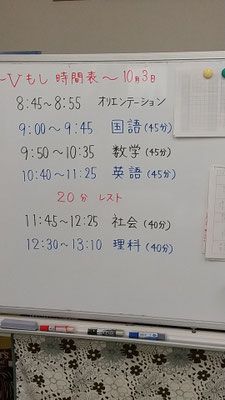 -Vもし 時間表～10月3日
8:45～8:55 オリエンテーション
9:00～9:45 国語(45分)
9:50～10:35 数学(45分)
10:40～11:25 英語(45分)
20分 レスト
11:45～12:25 社会(40分)
12:30～13:10 理科(40分)